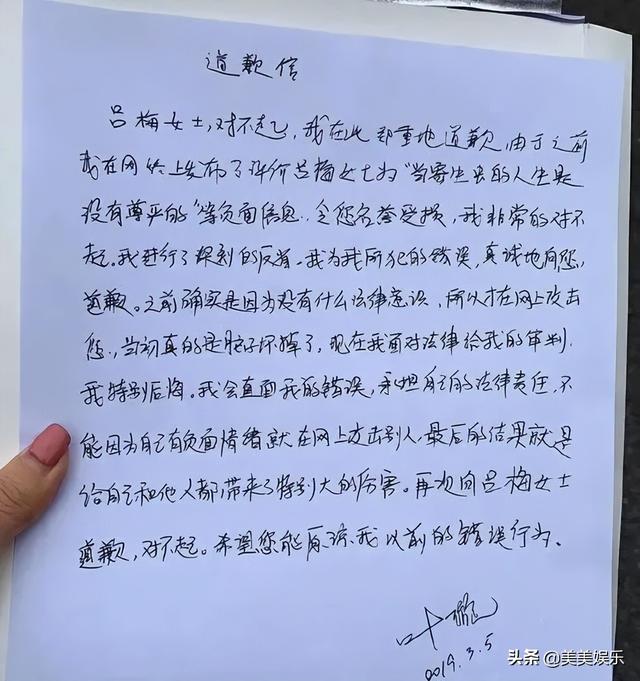 道歉信
吕梅女士,对不起,我在此郑重地道歉,由于之前
我在网络上发布了评价吕梅女士为“当寄生虫的人生是
没有尊严的”等负面信息,令您名誉受损,我非常的对不
起。我进行了深刻的反省,我为我所犯的错误,真诚地向您,
道歉。之前确实是因为没有什么法律意识,所以才在网上攻击
您,当初真的是脑子坏掉了,现在我面对法律给我的审判,
我特别后悔。我会直面我的错误,承担自己的法律责任,不
能因为自己有负面情绪就在网上攻击别人,最后的结果就是
给自己和他人都带来了特别大的伤害。再次向吕梅女士
道歉,对不起。希望您能原谅我以前的错误行为。
叶璇
2019.3.5
头条 @美美娱乐